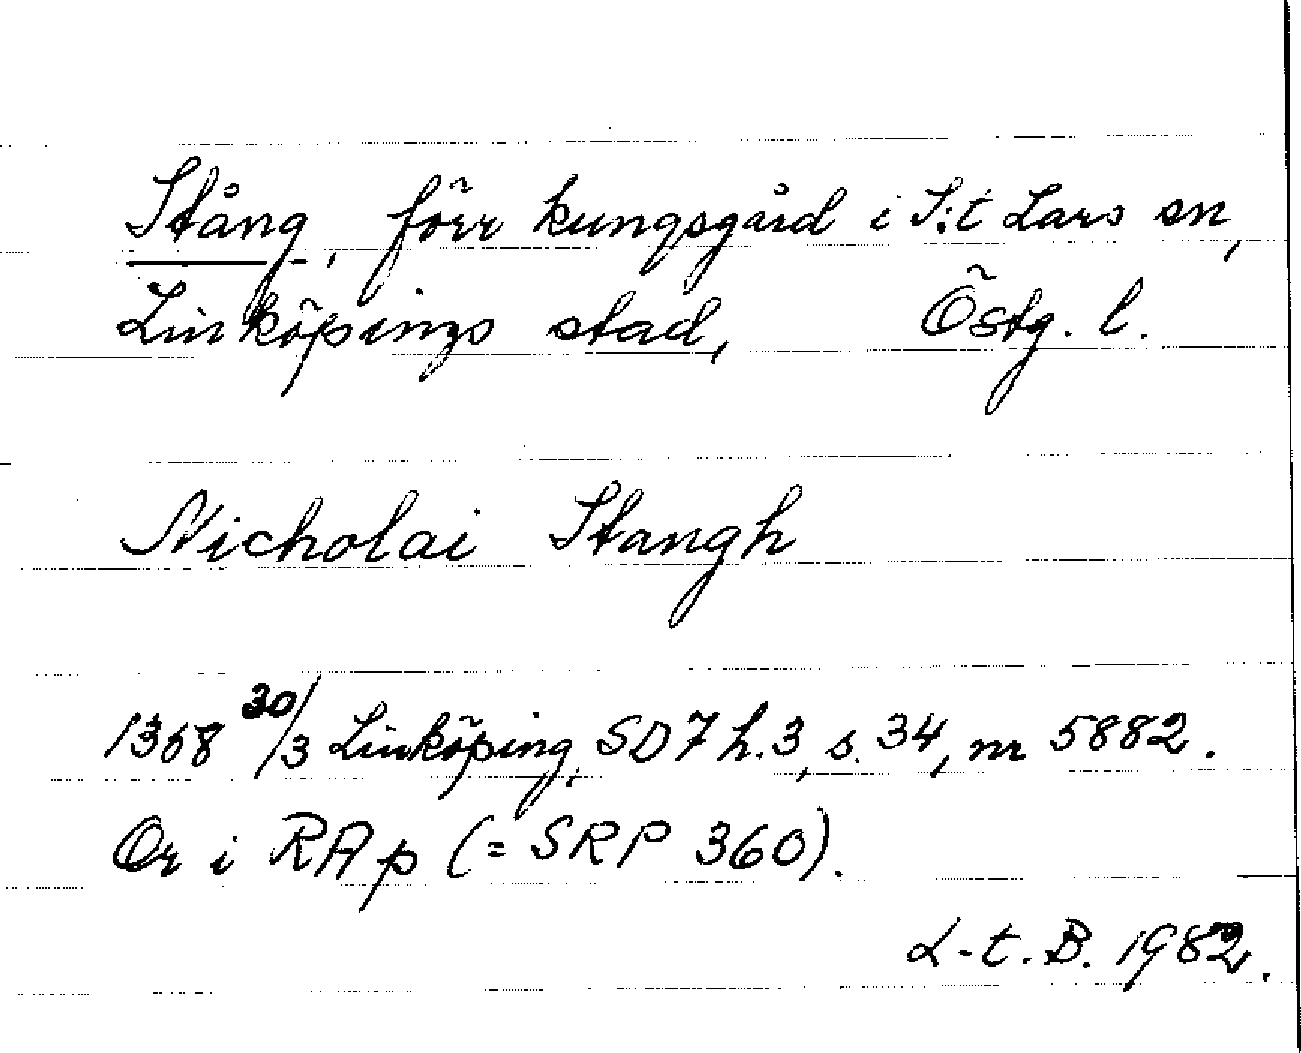 Stång, förr kungsgård i S:t Lars sn,
Linköpings stad, Östg. l.
Nicholai Stangh
1368 30/3 Linköping, SD 7 h. 3, s. 34, nr 5882.
Or i RAp (= SRP 360).
L-t. B. 1982.